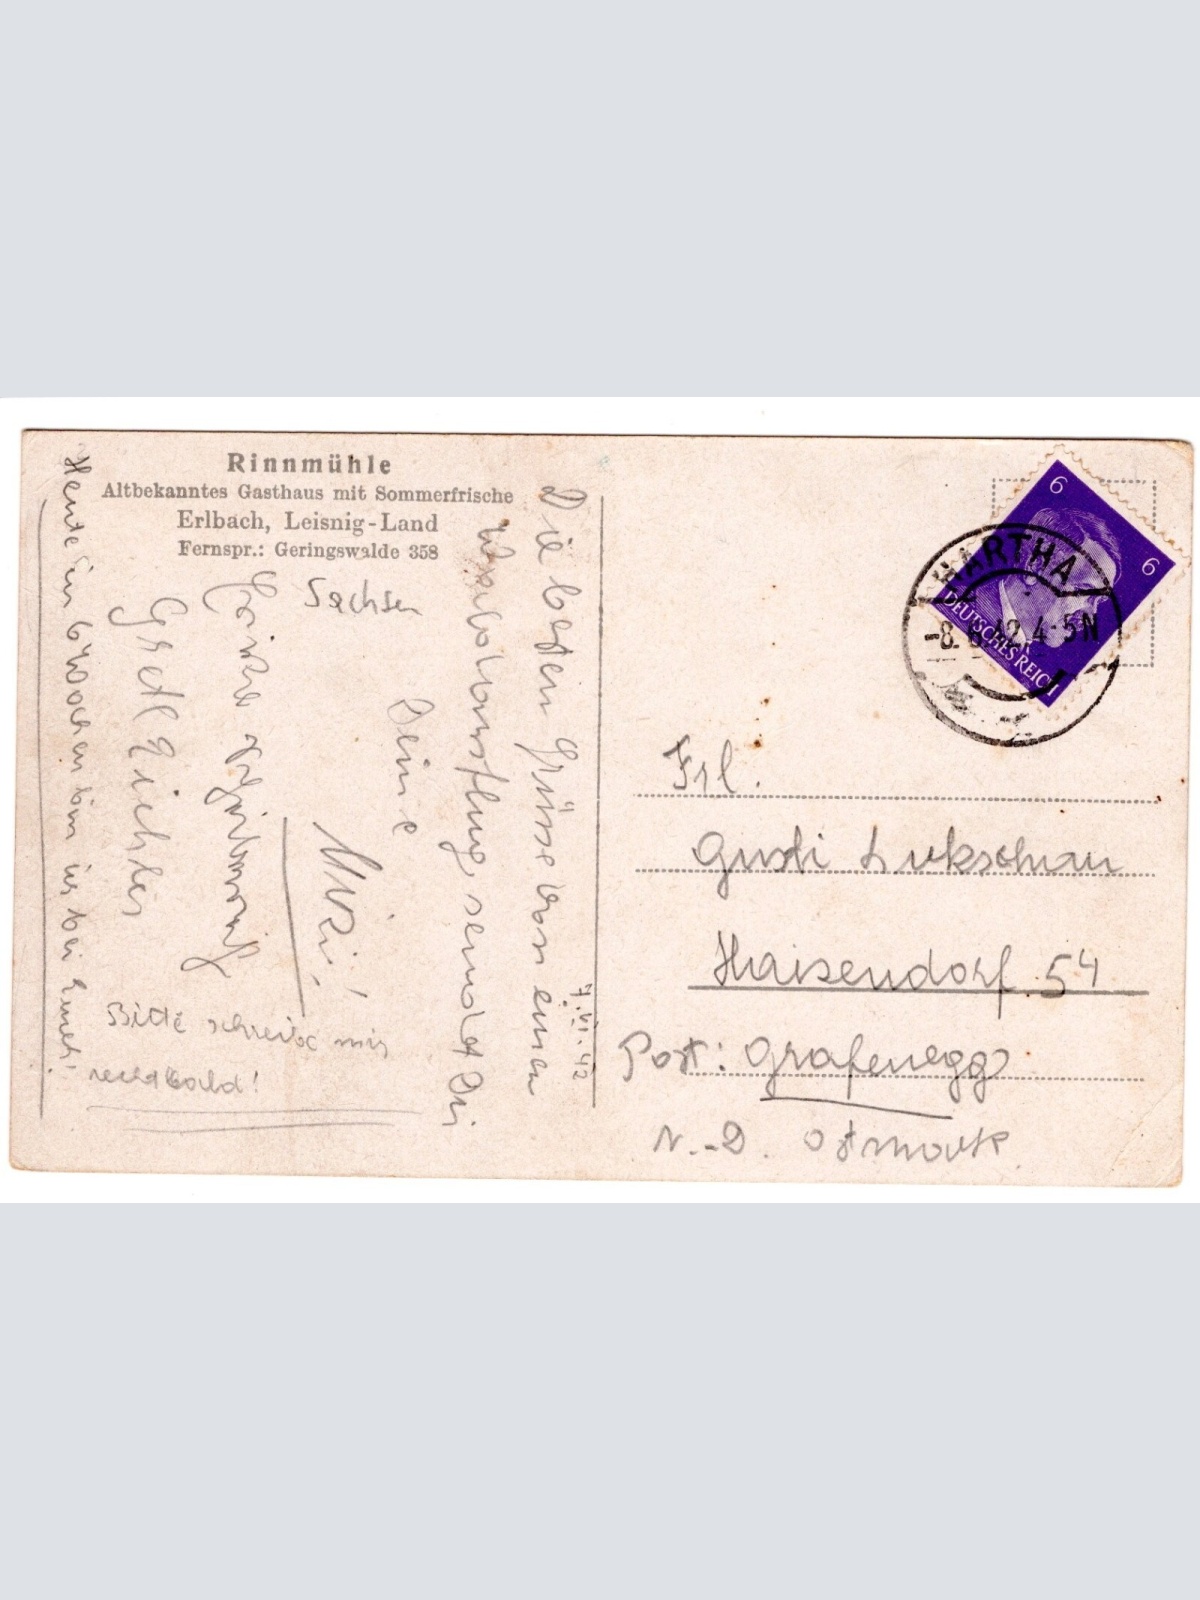 Rinnmühle
Altbekanntes Gasthaus mit Sommerfrische
Erlbach, Leisnig-Land
Fernspr.: Geringswalde 358
Sachsen
7.VI.42
Die besten Grüsse von einen
sendet Dir
Deine
Mizi!
Gretl Richter
Heute in 6 Wochen bin ich bei Euch!
Bitte schreibe mir
recht bald!
6
6
DEUTSCHES REICH
HARTHA
-8.6.42.4-5N
Frl.
Gusti Lukschan
Haisendorf 54
Post: Grafenegg
N.-D. Ostmark